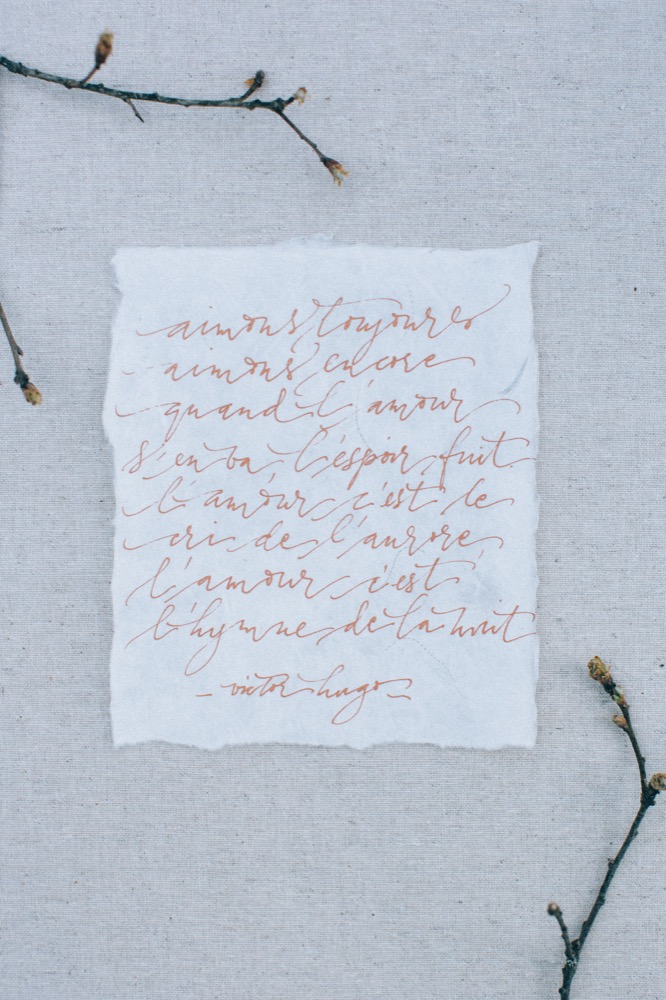 aimons toujours
aimons encore
quand l'amour
s'en va l'éspoir fuit
l'amour c'est le
cri de l'aurore
l'amour c'est
l'hymne de la nuit
- victor hugo -